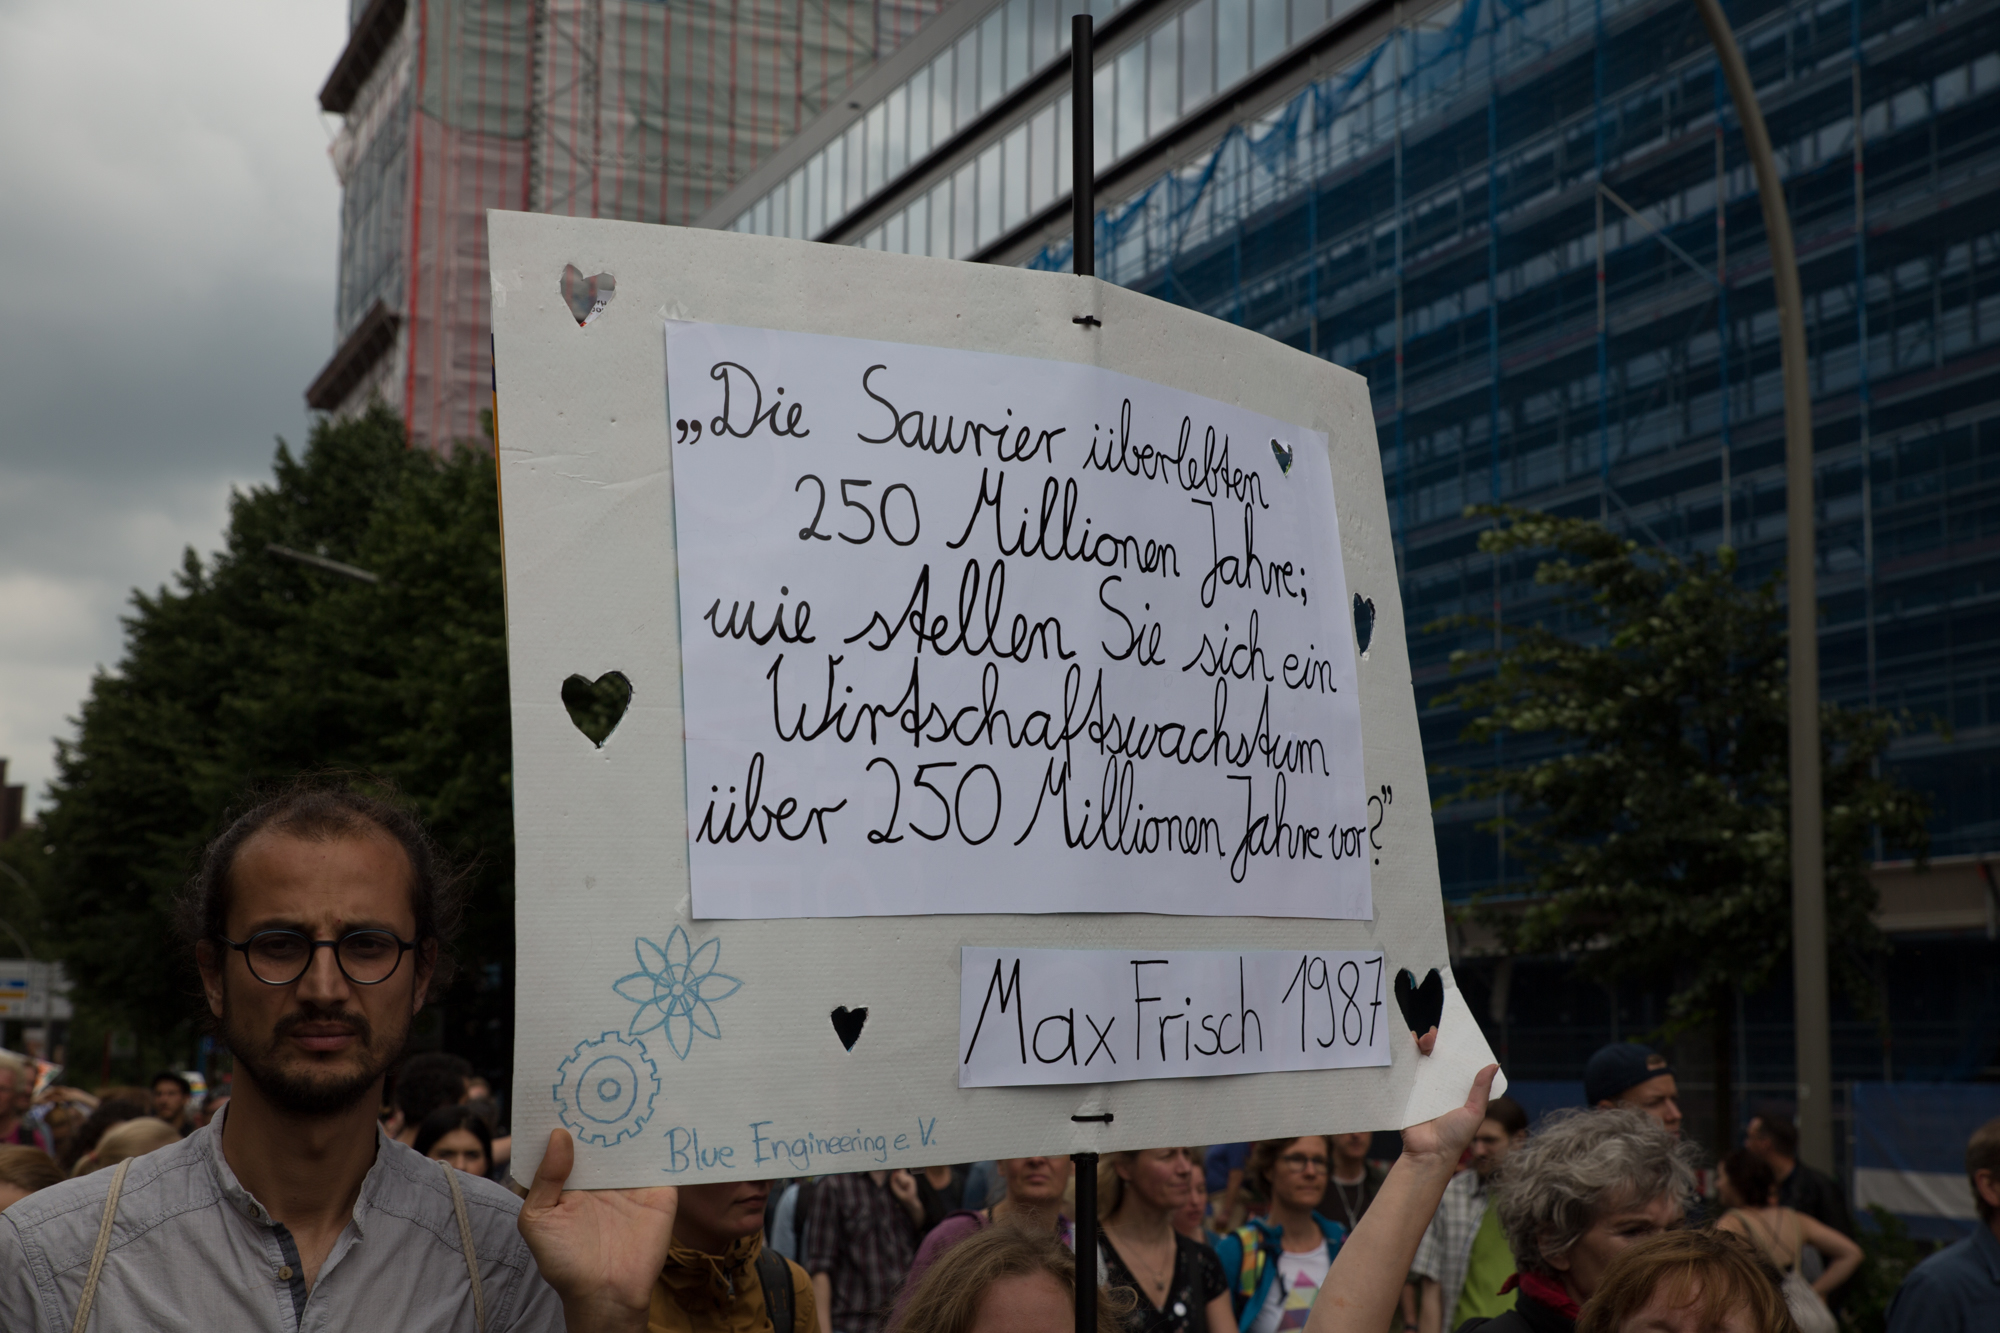 „Die Saurier überlebten
250 Millionen Jahre;
wie stellen Sie sich ein
Wirtschaftswachstum
über 250 Millionen Jahre vor?”
Max Frisch 1987
Blue Engineering e.V.